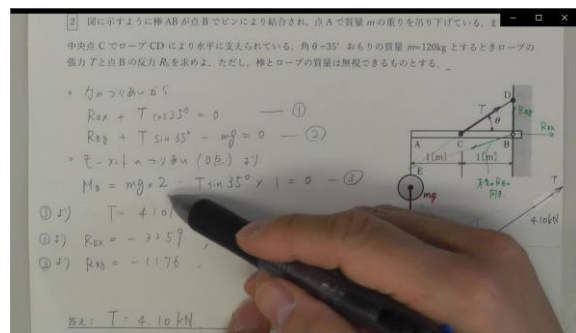 2 図に示すように棒 AB が点 B でピンにより結合され、点 A で質量 m の重りを吊り下げている。ま
中央点 C でロープ CD により水平に支えられている。角 θ=35° おもりの質量 m=120kg とするときロープの
張力 T と点 B の反力 R_B を求めよ。ただし、棒とロープの質量は無視できるものとする。
・力のつりあいから
R_BX + T cos35° = 0 ―①
R_BY + T sin35° - mg = 0 ―②
・モーメントのつりあい (B点) より
M_B = mg × 2 - T sin35° × 1 = 0 ―③
③より T = 4101
①より R_BX = -3359
②より R_BY = -1176
答え: T = 4.10 kN
D
T
R_BY
θ
R_BX
A
C
B
1[m]
1[m]
E
mg
T
4.10kN